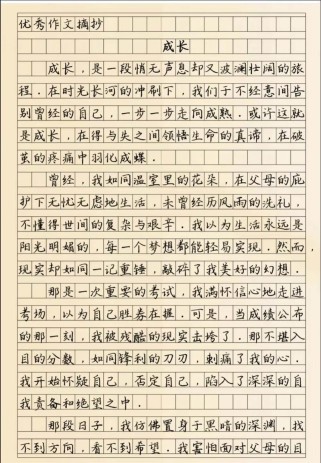 优秀作文摘抄
成长
成长，是一段悄无声息却又波澜壮阔的旅
程．在时光长河的冲刷下，我们于不经意间告
别曾经的自己，一步一步走向成熟．或许这就
是成长，在得与失之间领悟生命的真谛，在破
茧的疼痛中羽化成蝶．
曾经，我如同温室里的花朵，在父母的庇
护下无忧无虑地生活，未曾经历风雨的洗礼，
不懂得世间的复杂与艰辛．我以为生活永远是
阳光明媚的，每一个梦想都能轻易实现．然而，
现实却如同一记重锤，敲碎了我美好的幻想．
那是一次重要的考试，我满怀信心地走进
考场，以为自己胜券在握．可是，当成绩公布
的那一刻，我被残酷的现实击垮了．那不堪入
目的分数，如同锋利的刀刃，刺痛了我的心．
我开始怀疑自己，否定自己，陷入了深深的自
我责备和绝望之中．
那段日子，我仿佛置身于黑暗的深渊，找
不到方向，看不到希望．我害怕面对父母的目